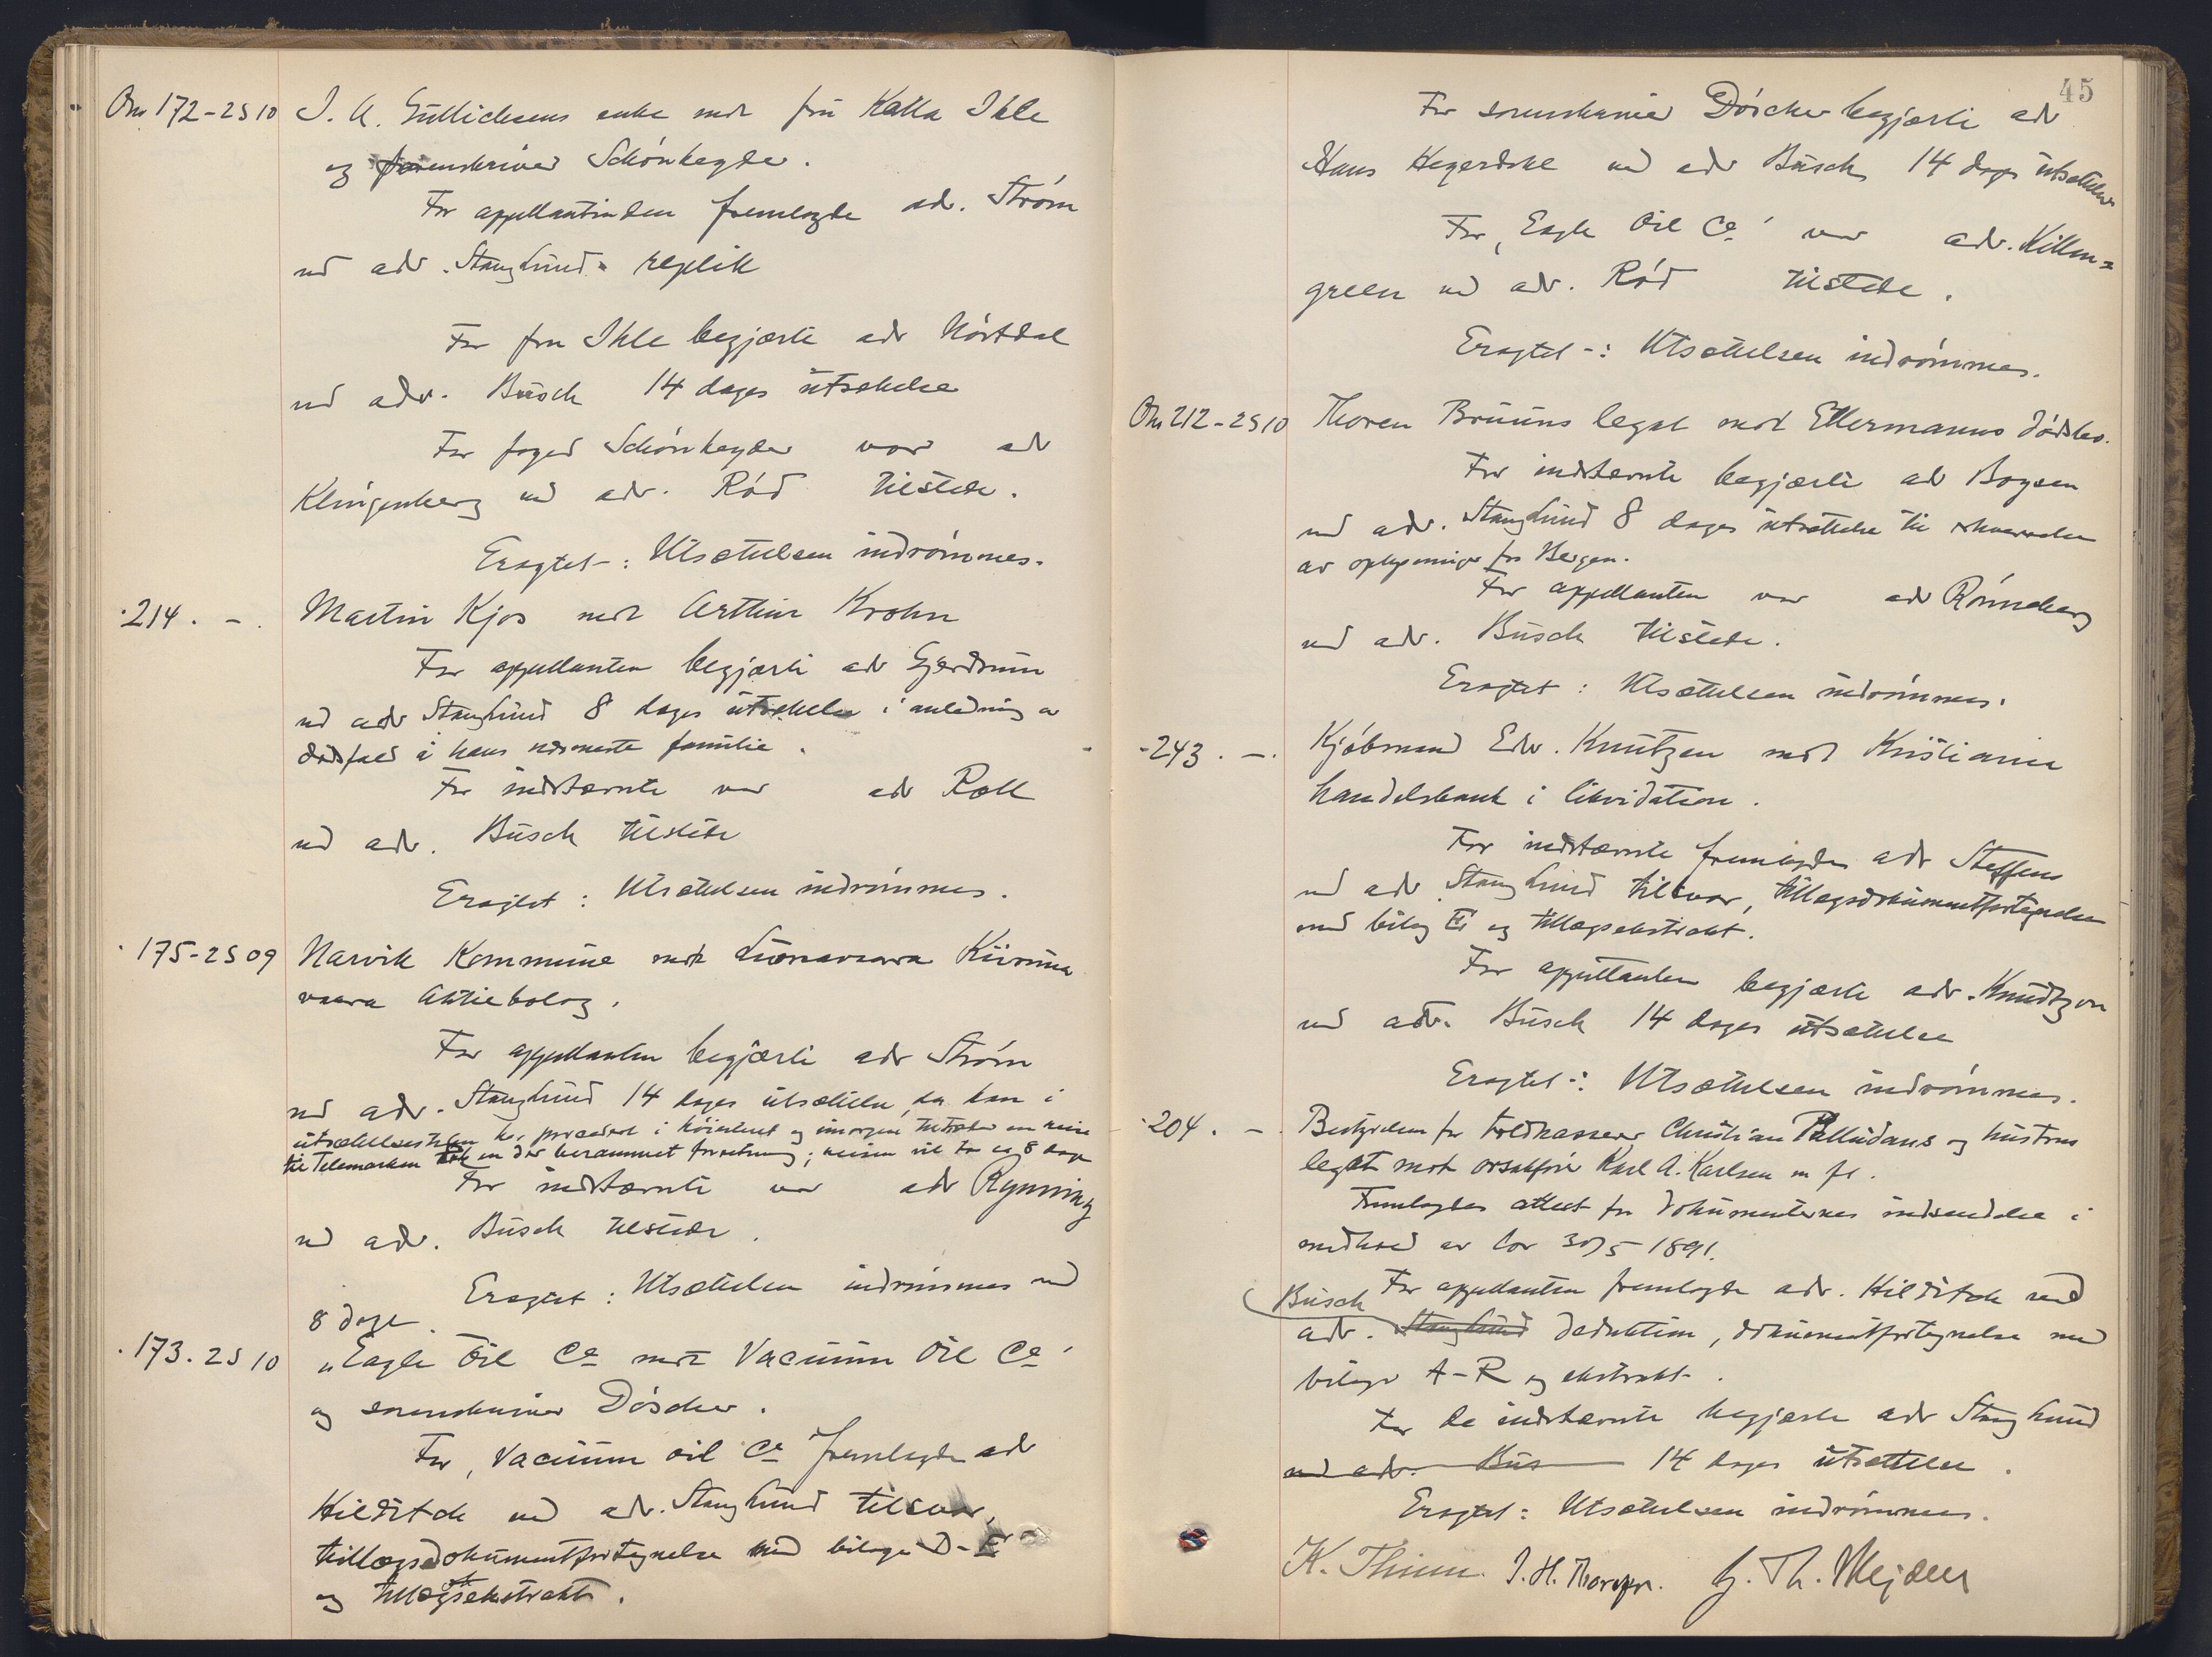 Om 172-2S 10 J. A. Gullichsens enke mot fru Kalla Ihle
og sorenskriver Schönheyder.
For appellantinden fremlagde adv. Ström
ved adv. Stang Lund replik
For fru Ihle begjærte adv Hörtdal
ved adv. Busch 14 dages utsættelse
For foged Schönheyder var adv
Klingenberg ved adv. Röd tilstede.
Eragtet-: Utsættelsen indrömmes.
·214. -. Martin Kjos mot Arthur Krohn
For appellanten begjærte adv Gjerdrum
ved adv Stang Lund 8 dages utsættelse i anledning av
dödsfald i hans nærmeste familie.
For indstævnte var adv Roll
ved adv. Busch tilstede
Eragtet: Utsættelsen indrömmes.
·175-2S 09 Narvik Kommune mot Luossavaara Kiiruna
vaara Aktiebolag.
For appellanten begjærte adv Ström
ved adv. Stang Lund 14 dages utsættelse, da han i
utsættelsestiden har procedert i höiesteret og imorgen tiltræder en reise
til Telemarken til en der berammet forretning; reisen vil ta ca 8 dage
For indstævnte var adv Rynning
ved adv. Busch tilstede.
Eragtet: Utsættelsen indrömmes med
8 dage.
·173. 2S 10 „Eagle Oil Co mot Vacuum Oil Co"
og sorenskriver Döscher.
For „Vacuum oil Co fremlagde adv
Hilditch ved adv. Stang Lund tilsvar,
tillægsdokumentfortegnelse med bilage D-E
og tillægsekstrakt.
45
For sorenskriver Döscher begjærte adv
Hans Hegerdahl ved adv Busch 14 dages utsættelse
For „Eagle Oil Co" var adv. Killen=
green ved adv. Röd tilstede.
Eragtet-: Utsættelsen indrömmes.
Om 212-2S 10 Thoren Bruuns legat mot Ellermanns dödsbo.
For indstævnte begjærte adv Boysen
ved adv. Stang Lund 8 dages utsættelse til erhvervelse
av oplysninger fra Bergen.
For appellanten var adv Rönneberg
ved adv. Busch tilstede.
Eragtet: Utsættelsen indrömmes.
-243. -. Kjöbmand Edv. Knutzen mot Kristiania
handelsbank i likvidation.
For indstævnte fremlagde adv Steffens
ved adv Stang Lund tilsvar, tillægsdokumentfortegnelse
med bilag E og tillægsekstrakt.
For appellanten begjærte adv. Knudtzon
ved adv. Busch 14 dages utsættelse
Eragtet-: Utsættelsen indrömmes.
·204. -. Bestyrelsen for toldkasserer Christian Palludans og hustrus
legat mot orsakförer Karl A. Karlsen m fl.
Fremlagdes attest for dokumenternes indsendelse i
medhold av lov 30/5 1891.
For appellanten fremlagde adv. Hilditch ved
Busch
adv. Stang Lund deduktion, dokumentfortegnelse med
bilage A-R og ekstrakt.
For de indstævnte begjærte adv Stang Lund
ved adv. Bus 14 dages utsættelse.
Eragtet: Utsættelsen indrömmes.
K. Thinn. J. H. Thoresen. G. Th. Mejdell